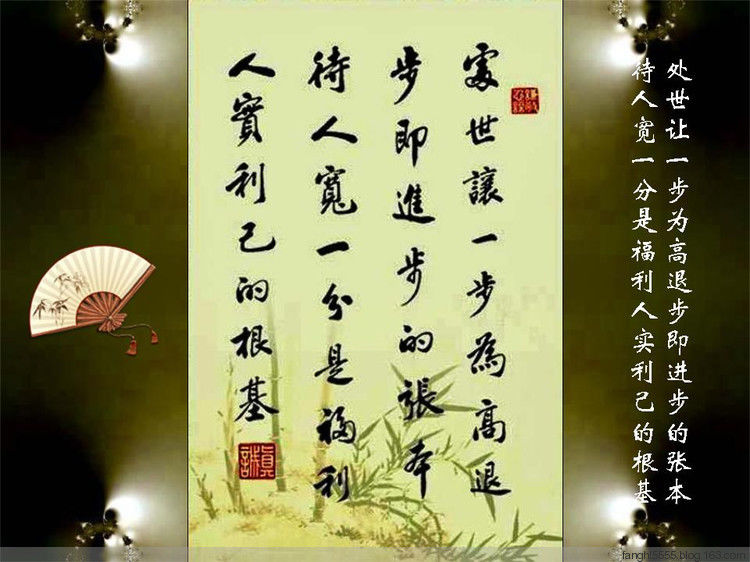 處世讓一步為高退
步即進步的張本
待人寬一分是福利
人實利己的根基
眞誠
处世让一步为高退步即进步的张本
待人宽一分是福利人实利己的根基
fanghl5555.blog.163.com